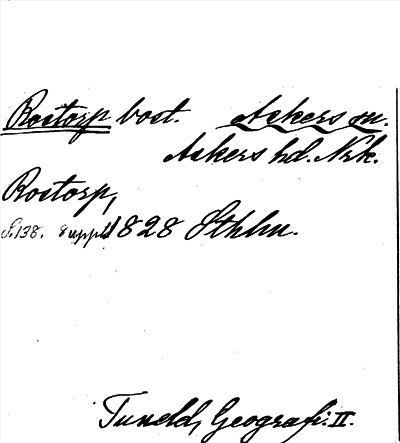 Rostorp bost. Askers sn.
Askers hd. Nrk.
Rostorp,
S. 138. 8 uppl. 1828 Sthlm.
Tuneld, Geografi. II.